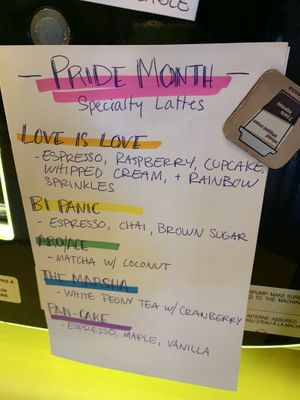 - PRIDE MONTH -
Specialty Lattes
LOVE IS LOVE
- ESPRESSO, RASPBERRY, CUPCAKE,
WHIPPED CREAM, + RAINBOW
SPRINKLES
BI PANIC
- ESPRESSO, CHAI, BROWN SUGAR
ARO/ACE
- MATCHA W/ COCONUT
THE MARSHA
- WHITE PEONY TEA W/ CRANBERRY
PAN-CAKE
- ESPRESSO, MAPLE, VANILLA